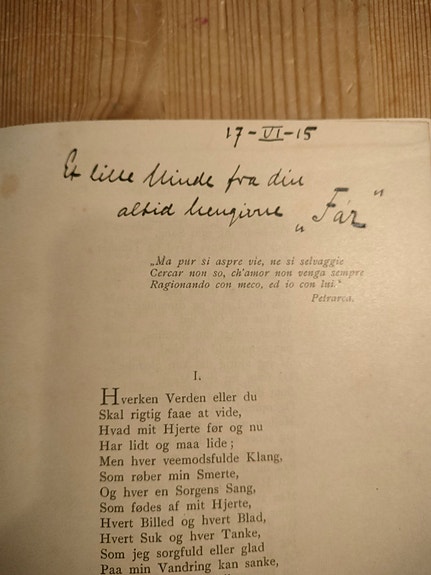 17-VI-15
Et lille Minde fra din
altid hengivne „Får”
„Ma pur si aspre vie, ne si selvaggie
Cercar non so, ch'amor non venga sempre
Ragionando con meco, ed io con lui.“
Petrarca.
I.
Hverken Verden eller du
Skal rigtig faae at vide,
Hvad mit Hjerte før og nu
Har lidt og maa lide;
Men hver veemodsfulde Klang,
Som røber min Smerte,
Og hver en Sorgens Sang,
Som fødes af mit Hjerte,
Hvert Billed og hvert Blad,
Hvert Suk og hver Tanke,
Som jeg sorgfuld eller glad
Paa min Vandring kan sanke,